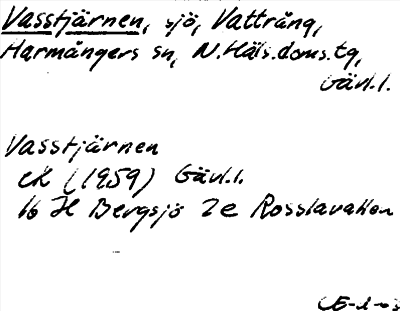 Vasstjärnen, sjö, Vattrång,
Harmångers sn, N. Häls. doms. tg,
Gävl. l.
Vasstjärnen
ek (1959) Gävl. l.
16 H Bergsjö 2e Rosslavallen